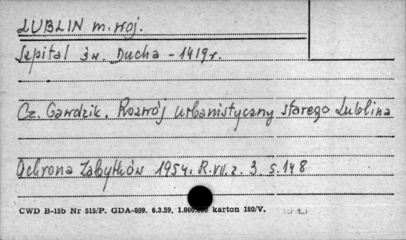 LUBLIN m. woj.
Szpital św. Ducha - 1419r.
Cz. Gawdzik, Rozwój urbanistyczny starego Lublina
Ochrona Zabytków 1954. R.VII. z. 3. s. 148
CWD B-15b Nr 515/P. GDA-809. 6.3.59. 1.000.000 karton 180/V.